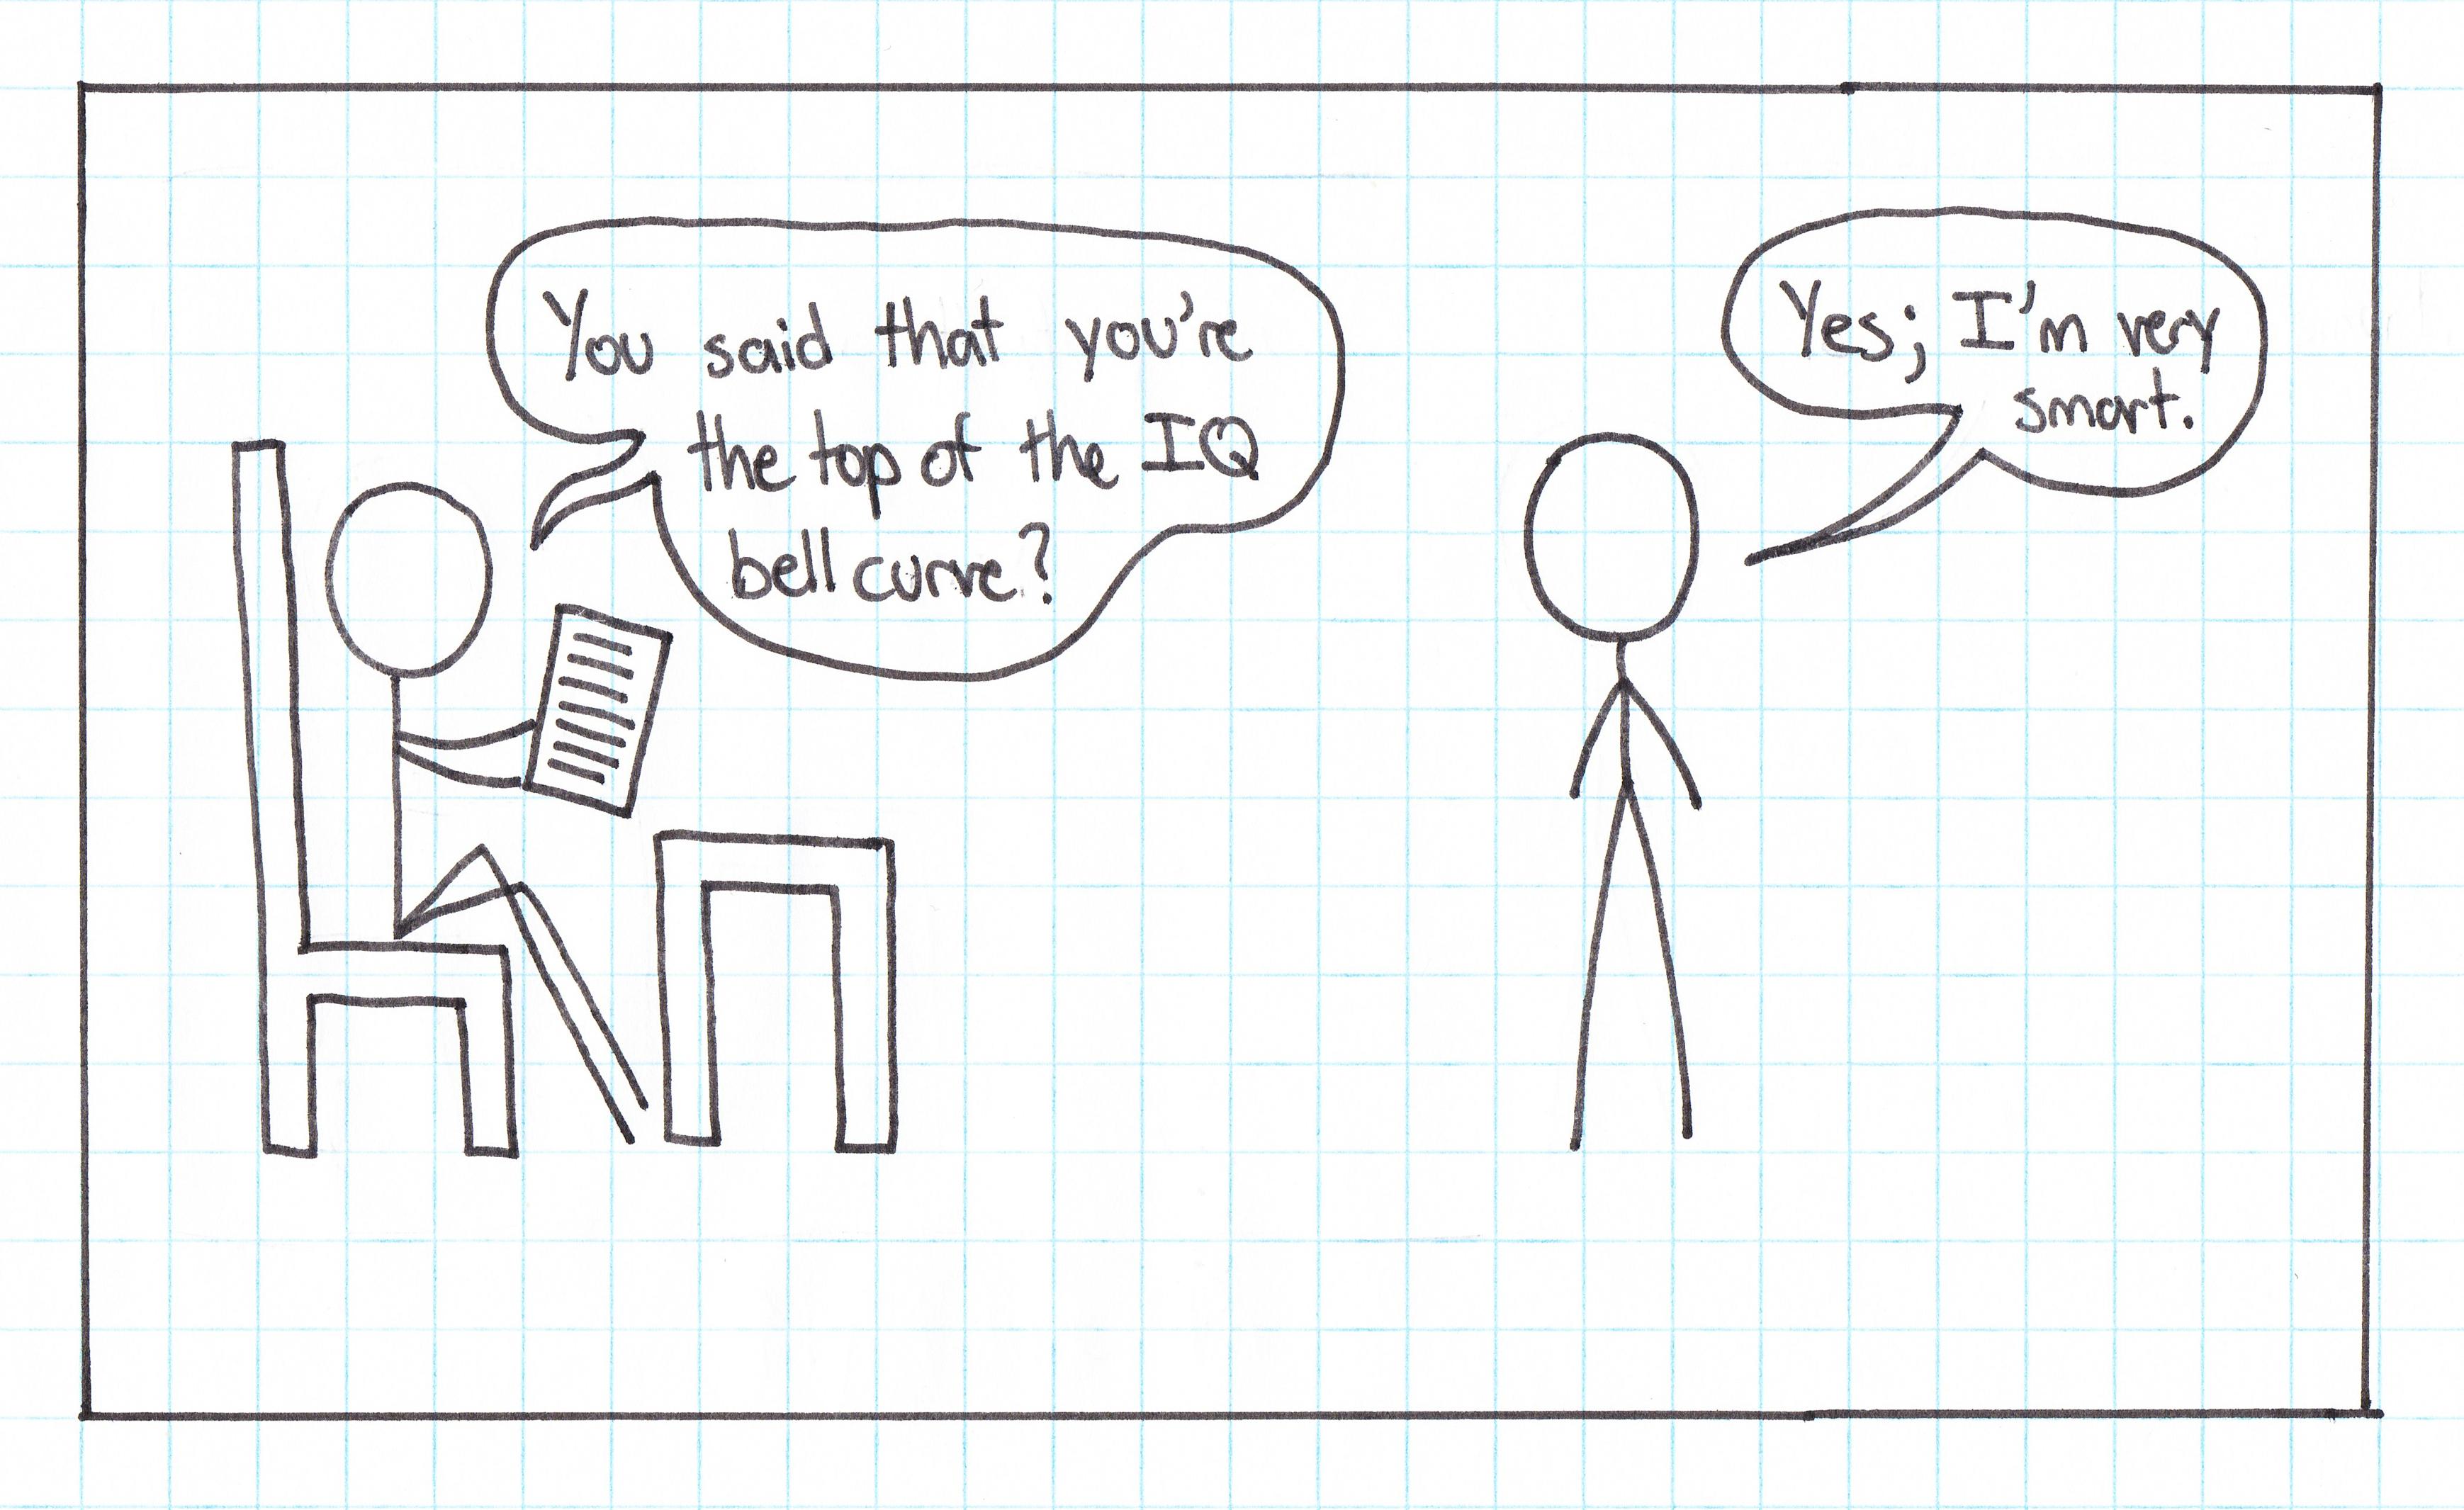 You said that you're
the top of the IQ
bell curve?
Yes; I'm very
smart.